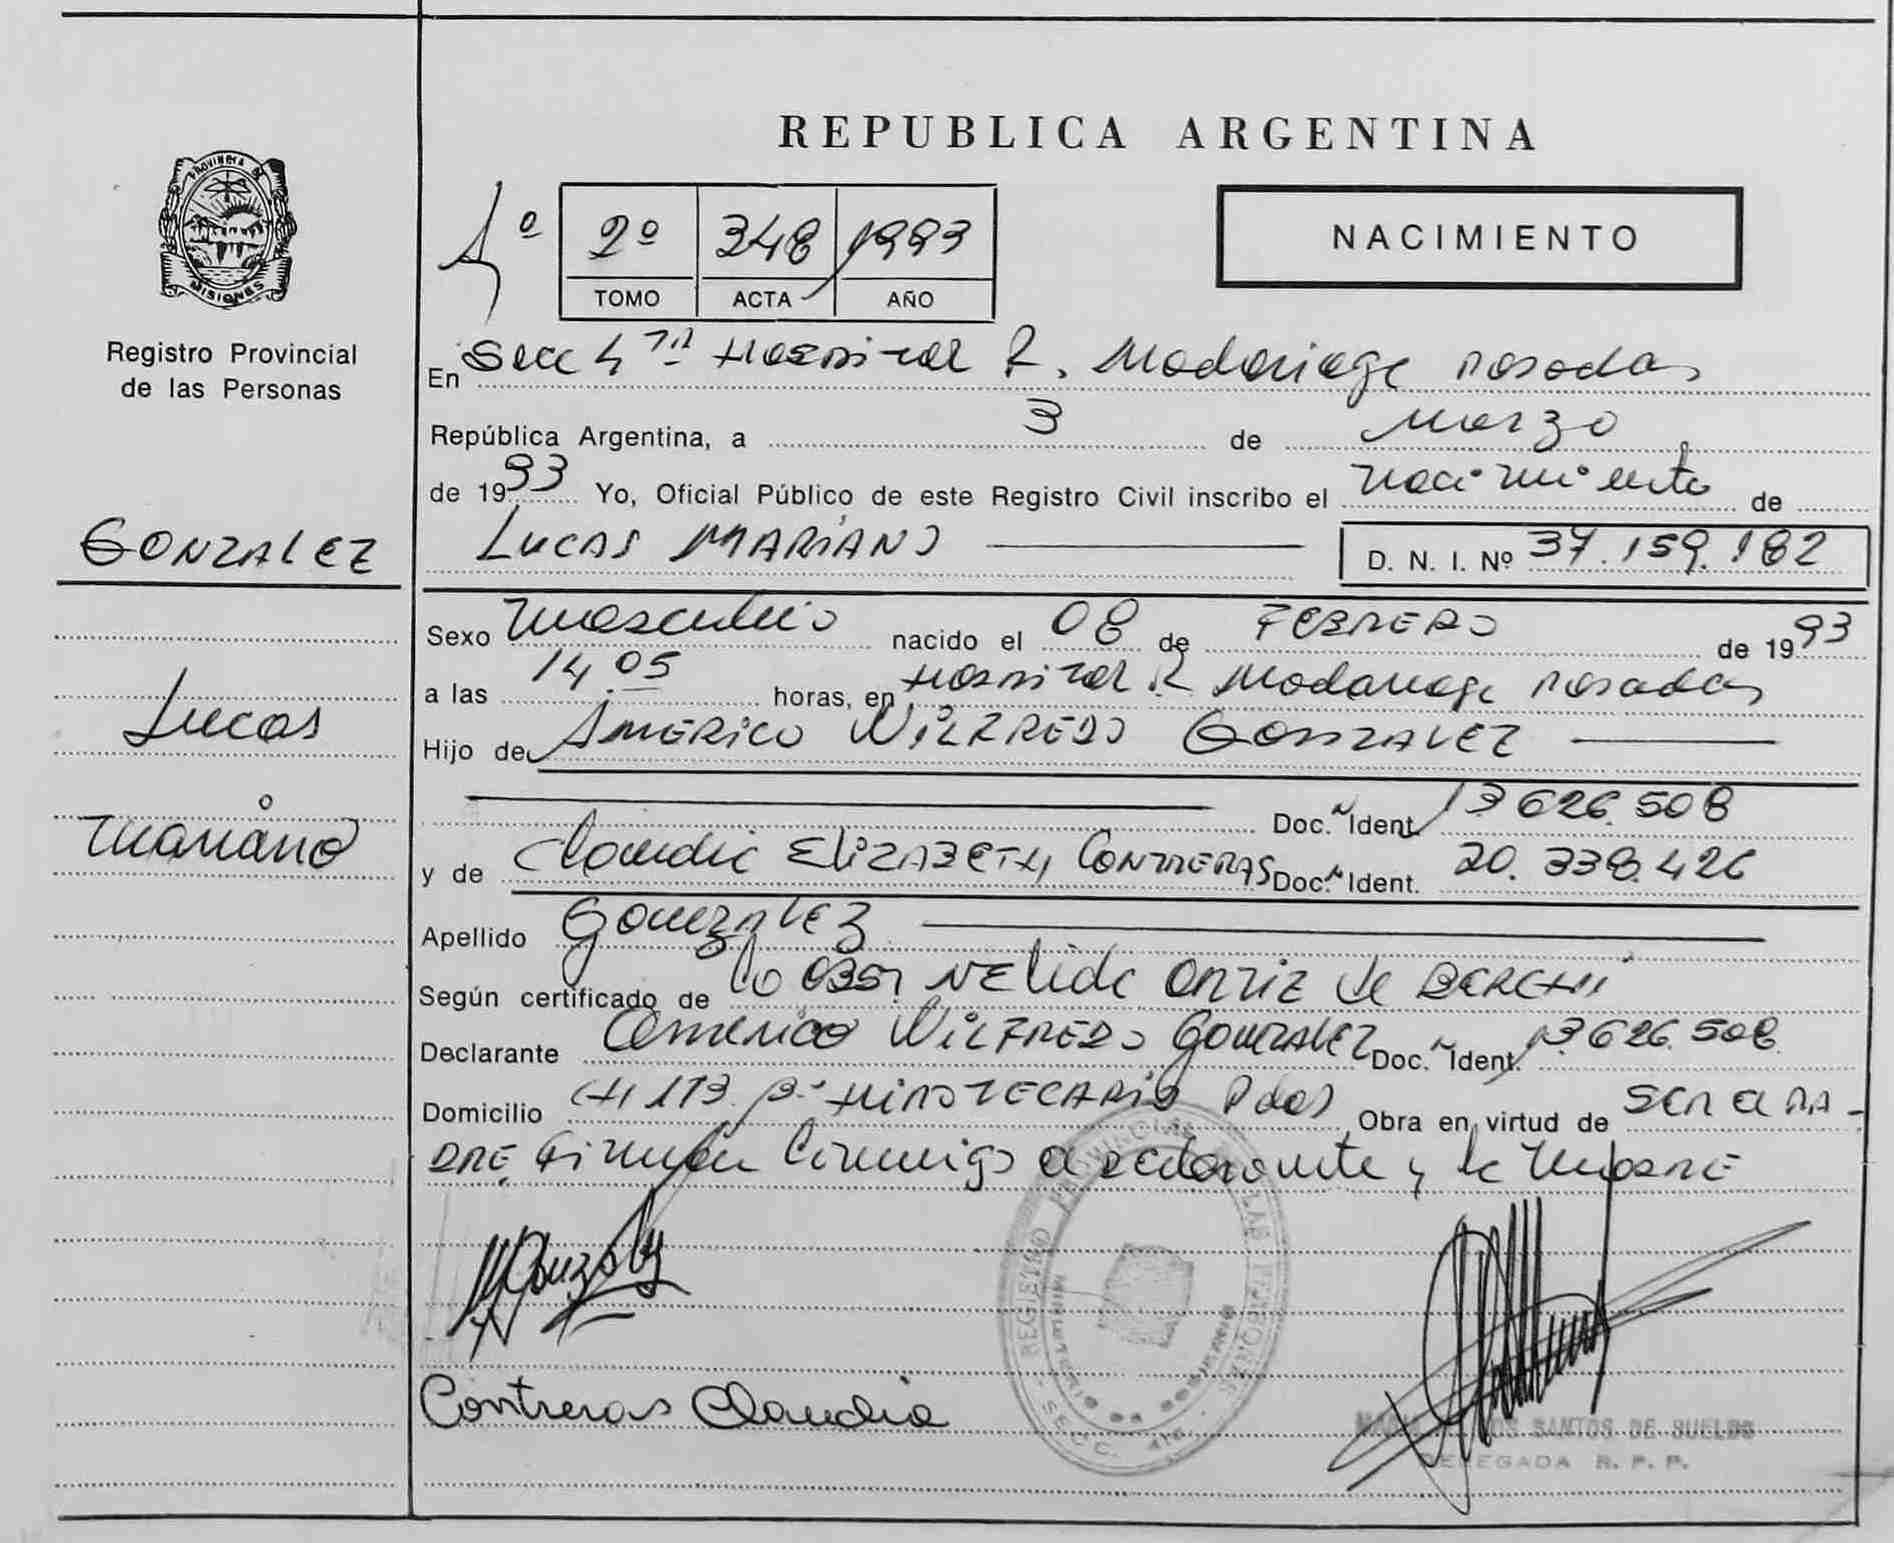 PROVINCIA DE
MISIONES
Registro Provincial
de las Personas
GONZALEZ
Lucas
Mariano
REPUBLICA ARGENTINA
2º 348 1993
TOMO ACTA AÑO
NACIMIENTO
En Secc 4ta Hospital R. Madariaga Posadas
República Argentina, a 3 de Marzo
de 1993 Yo, Oficial Público de este Registro Civil inscribo el nacimiento de
LUCAS MARIANO D. N. I. Nº 37.159.182
Sexo masculino nacido el 08 de FEBRERO de 1993
a las 14.05 horas, en Hospital R Madariaga Posadas
Hijo de AMERICO WILFREDO GONZALEZ
Doc. Ident. 13 626.508
y de Claudia ELIZABETH CONTRERAS Doc. Ident. 20.338.426
Apellido GONZALEZ
Según certificado de la OBST NELIDA ORTIZ de
Declarante AMERICO WILFREDO GONZALEZ Doc. Ident. 13.626.508
Domicilio CH 113 Bº HIPOTECARIO Pdas Obra en virtud de SER EL PA-
DRE Firman Conmigo el declarante y la MADRE
Gonzalez
REGISTRO PROVINCIAL DE LAS PERSONAS
MINISTERIO DE GOBIERNO
SECC. 4ta
Contreras Claudia
SANTOS DE SUELDO
DELEGADA R. P. P.